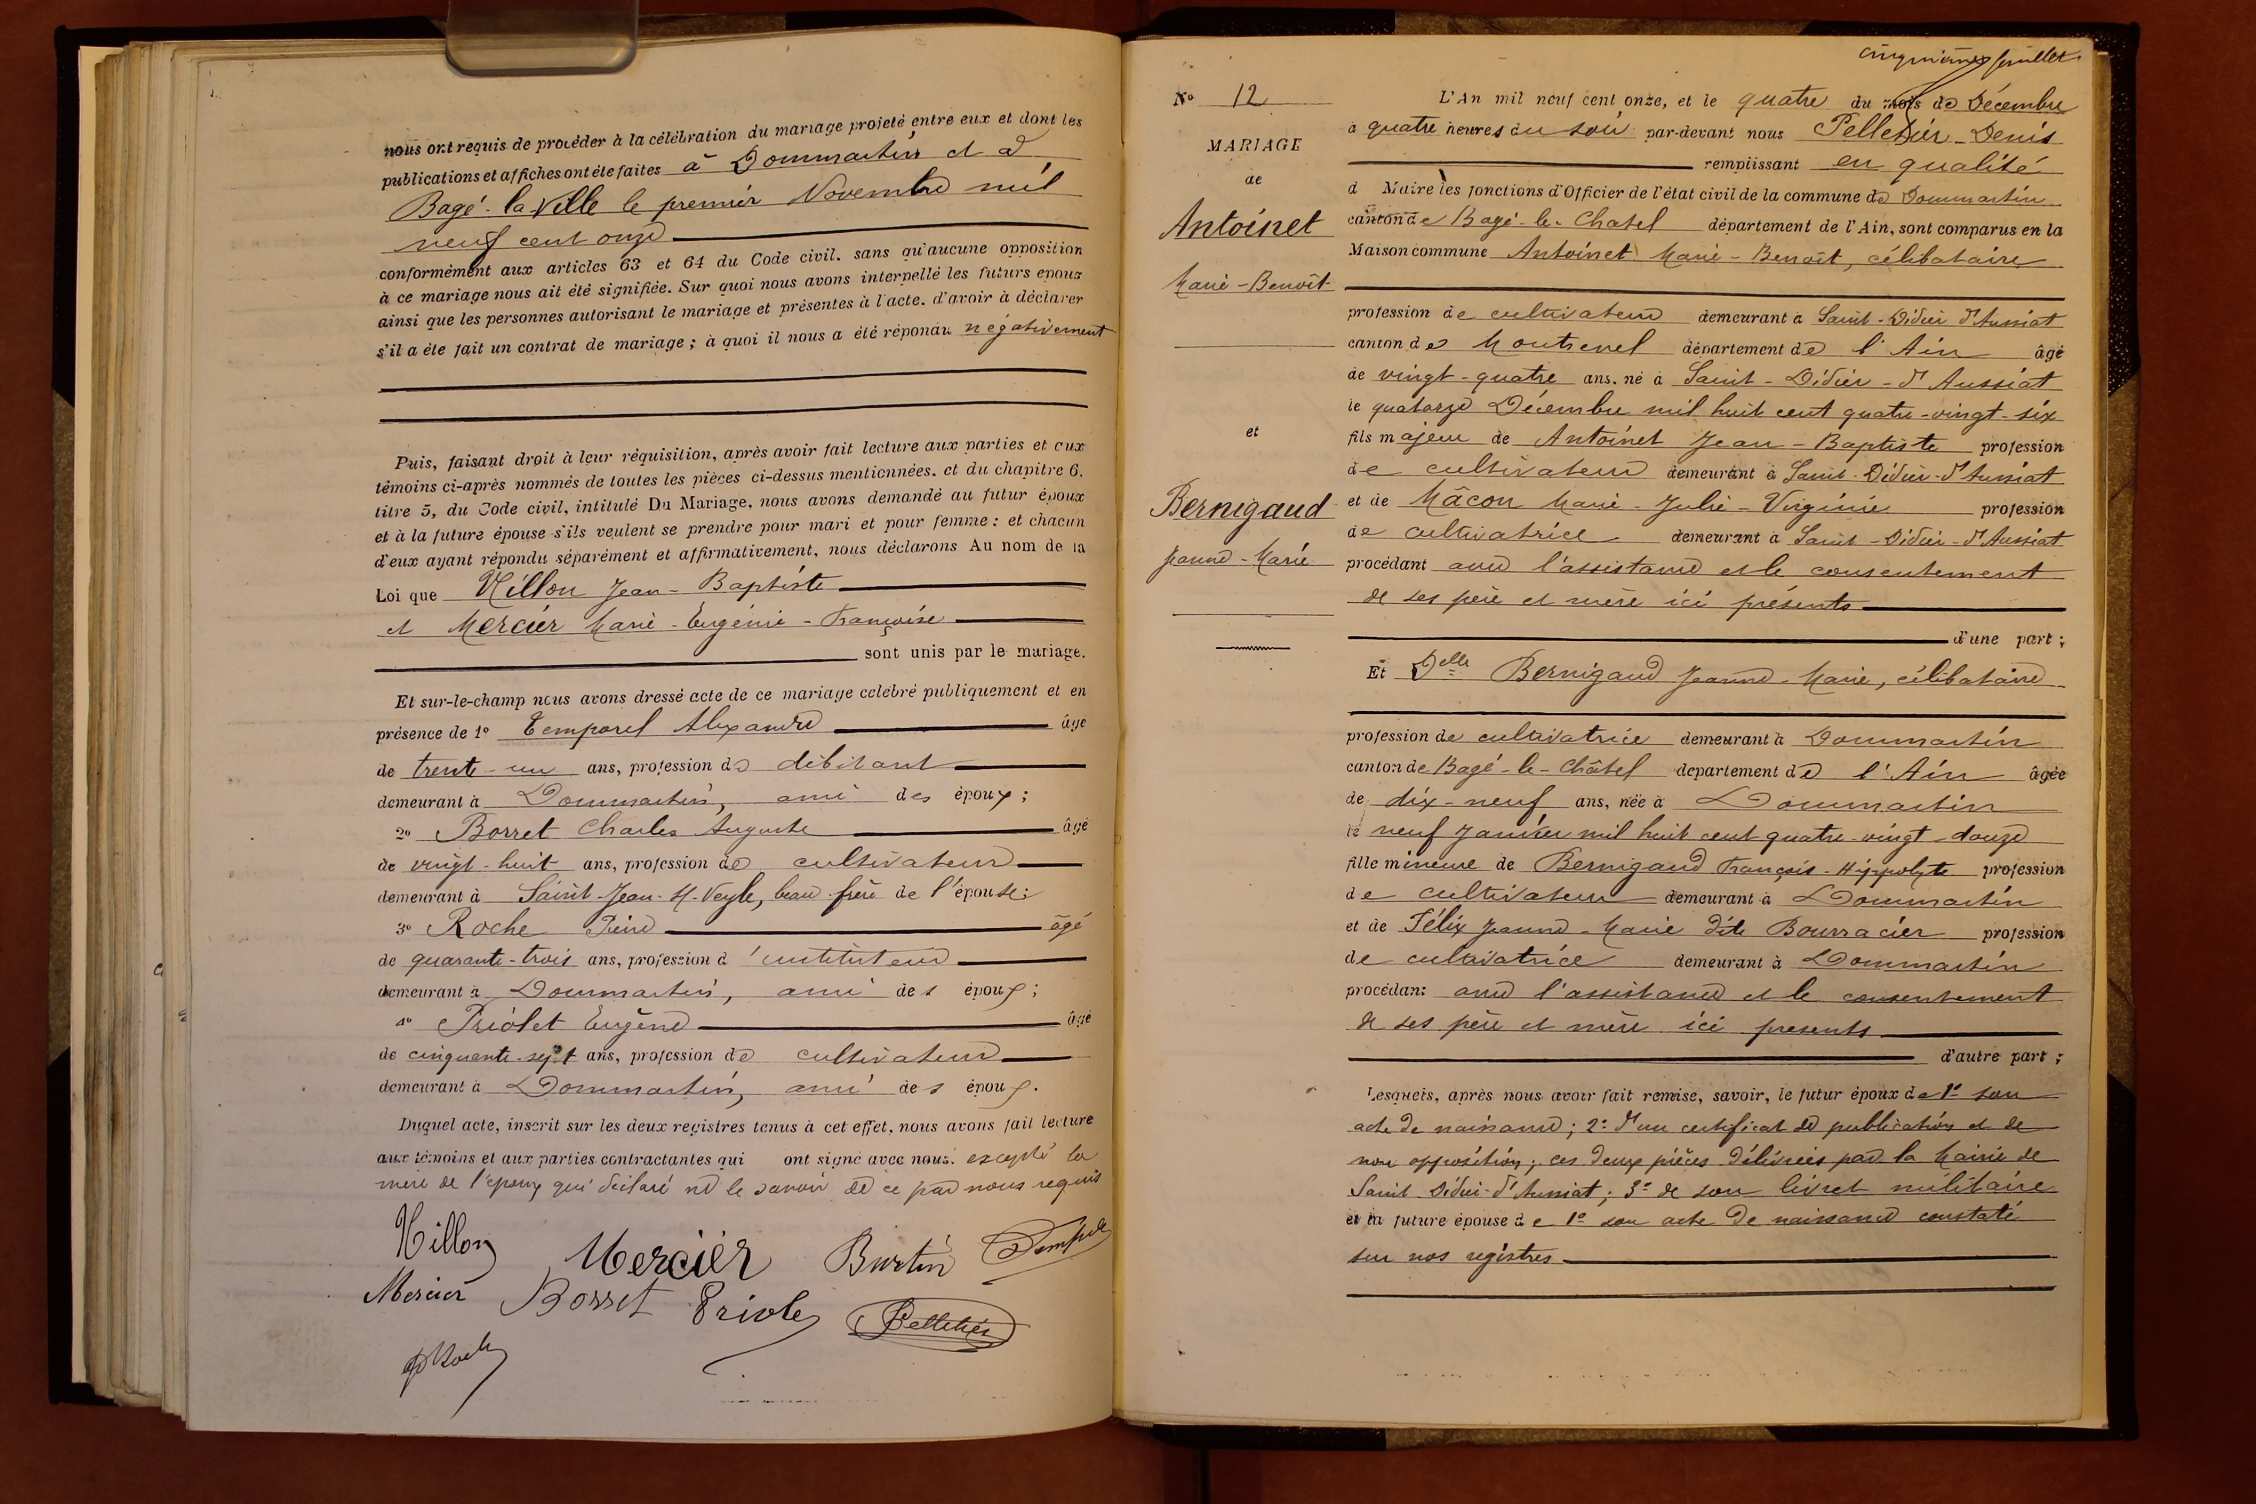 nous ont requis de procéder à la célébration du mariage projeté entre eux et dont les
publications et affiches ont été faites à Dommartin et à
Bagé-la-Ville le premier Novembre mil
neuf cent onze
conformément aux articles 63 et 64 du Code civil. sans qu'aucune opposition
à ce mariage nous ait été signifiée. Sur quoi nous avons interpellé les futurs époux
ainsi que les personnes autorisant le mariage et présentes à l'acte. d'avoir à déclarer
s'il a été fait un contrat de mariage ; à quoi il nous a été répondu négativement
Puis, faisant droit à leur réquisition, après avoir fait lecture aux parties et aux
témoins ci-après nommés de toutes les pièces ci-dessus mentionnées. et du chapitre 6.
titre 5, du Code civil, intitulé Du Mariage, nous avons demandé au futur époux
et à la future épouse s'ils veulent se prendre pour mari et pour femme : et chacun
d'eux ayant répondu séparément et affirmativement, nous déclarons Au nom de la
Loi que Hillon Jean-Baptiste
et Mercier Marie-Eugénie-Françoise
sont unis par le mariage.
Et sur-le-champ nous avons dressé acte de ce mariage célébré publiquement et en
présence de 1º Temporel Alexandre âgé
de trente-un ans, profession de débitant
demeurant à Dommartin, ami des époux ;
2º Borret Charles Auguste âgé
de vingt-huit ans, profession de cultivateur
demeurant à Saint-Jean-s-Veyle, beau-frère de l'épouse ;
3º Roche Pierre âgé
de quarante-trois ans, profession d'instituteur
demeurant à Dommartin, ami des époux ;
4º Priolet Eugène âgé
de cinquante-sept ans, profession de cultivateur
demeurant à Dommartin, ami des époux.
Duquel acte, inscrit sur les deux registres tenus à cet effet, nous avons fait lecture
aux témoins et aux parties contractantes qui ont signé avec nous. excepté la
mère de l'époux qui déclaré ne le savoir de ce par nous requis
Hillon Mercier Burtin
Mercier Borret Priolet Pelletier
Roche
cinquième feuillet
Nº 12
MARIAGE
de
Antoinet
Marie-Benoît
et
Bernigaud
Jeanne-Marie
L'An mil neuf cent onze, et le quatre du mois de Décembre
à quatre heures du soir par-devant nous Pelletier Denis
remplissant en qualité
d Maire les fonctions d'Officier de l'état civil de la commune de Dommartin
canton de Bagé-le-Chatel département de l'Ain, sont comparus en la
Maison commune Antoinet Marie-Benoît, célibataire
profession de cultivateur demeurant à Saint-Didier d'Aussiat
canton de Montrevel département de l'Ain âgé
de vingt-quatre ans. né à Saint-Didier-d'Aussiat
le quatorze Décembre mil huit cent quatre-vingt-six
fils majeur de Antoinet Jean-Baptiste profession
de cultivateur demeurant à Saint-Didier-d'Aussiat
et de Mâcon Marie-Julie-Virginie profession
de cultivatrice demeurant à Saint-Didier-d'Aussiat
procédant avec l'assistance et le consentement
de ses père et mère ici présents
d'une part ;
Et Delle Bernigaud Jeanne-Marie, célibataire
profession de cultivatrice demeurant à Dommartin
canton de Bagé-le-Châtel département de l'Ain âgée
de dix-neuf ans, née à Dommartin
le neuf Janvier mil huit cent quatre-vingt-douze
fille mineure de Bernigaud François-Hippolyte profession
de cultivateur demeurant à Dommartin
et de Félix Jeanne-Marie dite Bourracier profession
de cultivatrice demeurant à Dommartin
procédant avec l'assistance et le consentement
de ses père et mère ici présents
d'autre part ;
Lesquels, après nous avoir fait remise, savoir, le futur époux de 1º son
acte de naissance ; 2º d'un certificat de publication et de
non opposition ; ces deux pièces délivrées par la Mairie de
Saint-Didier-d'Aussiat ; 3º de son livret militaire
et la future épouse de 1º son acte de naissance constaté
sur nos registres